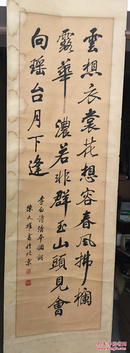 雲想衣裳花想容春風拂檻
露華濃若非群玉山頭見會
向瑶台月下逢
李白清平調詞